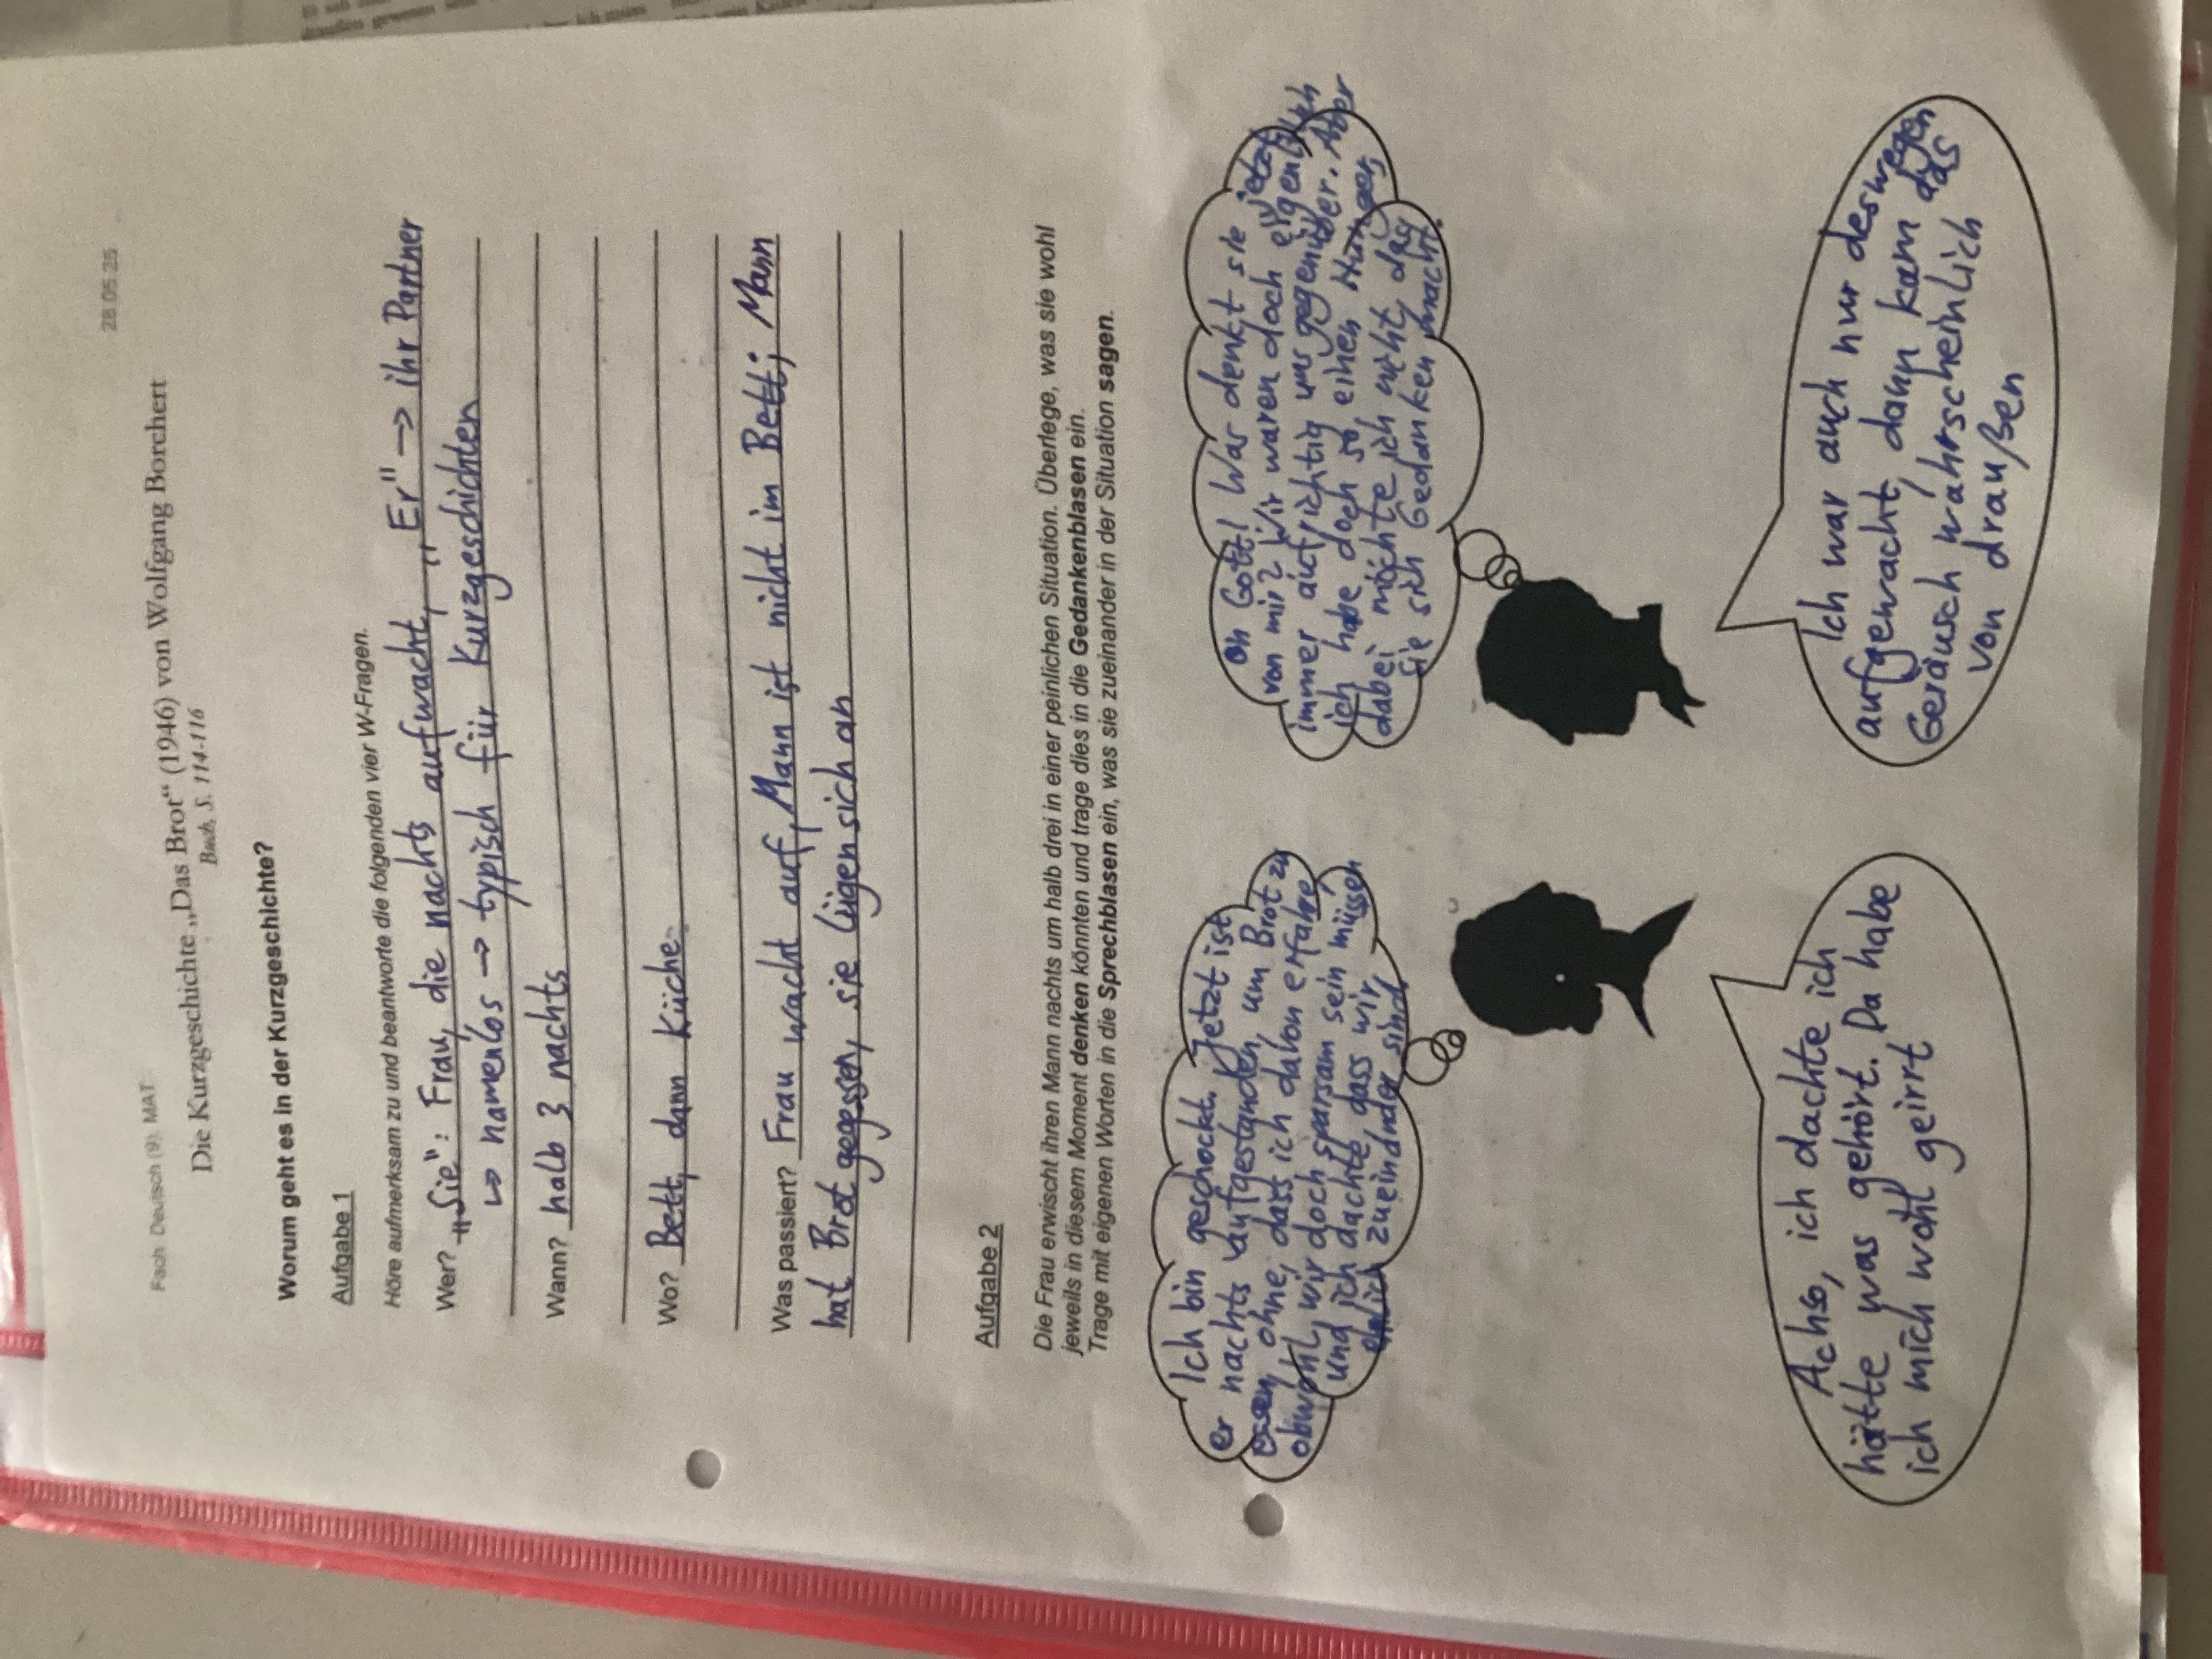 28 05 25
Fach Deutsch (9), MAT
Die Kurzgeschichte „Das Brot“ (1946) von Wolfgang Borchert
Buch, S. 114-116
Worum geht es in der Kurzgeschichte?
Aufgabe 1
Höre aufmerksam zu und beantworte die folgenden vier W-Fragen.
Wer? „Sie“: Frau, die nachts aufwacht, „Er“ → ihr Partner
↳ namenlos → typisch für Kurzgeschichten
Wann? halb 3 nachts
Wo? Bett, dann Küche
Was passiert? Frau wacht auf, Mann ist nicht im Bett; Mann
hat Brot gegessen, sie lügen sich an
Aufgabe 2
Die Frau erwischt ihren Mann nachts um halb drei in einer peinlichen Situation. Überlege, was sie wohl
jeweils in diesem Moment denken könnten und trage dies in die Gedankenblasen ein.
Trage mit eigenen Worten in die Sprechblasen ein, was sie zueinander in der Situation sagen.
Ich bin geschockt. Jetzt ist
er nachts aufgestanden, um Brot zu
essen, ohne, dass ich davon erfahre,
obwohl wir doch sparsam sein müssen
und ich dachte dass wir
ehrlich zueinander sind
Oh Gott! Was denkt sie jetzt
von mir? Wir waren doch eigentlich
immer aufrichtig uns gegenüber. Aber
ich habe doch so einen Hunger,
dabei möchte ich nicht, das
sie sich Gedanken macht.
Achso, ich dachte ich
hätte was gehört. Da habe
ich mich wohl geirrt
Ich war auch nur deswegen
aufgewacht, dann kam das
Geräusch wahrscheinlich
von draußen